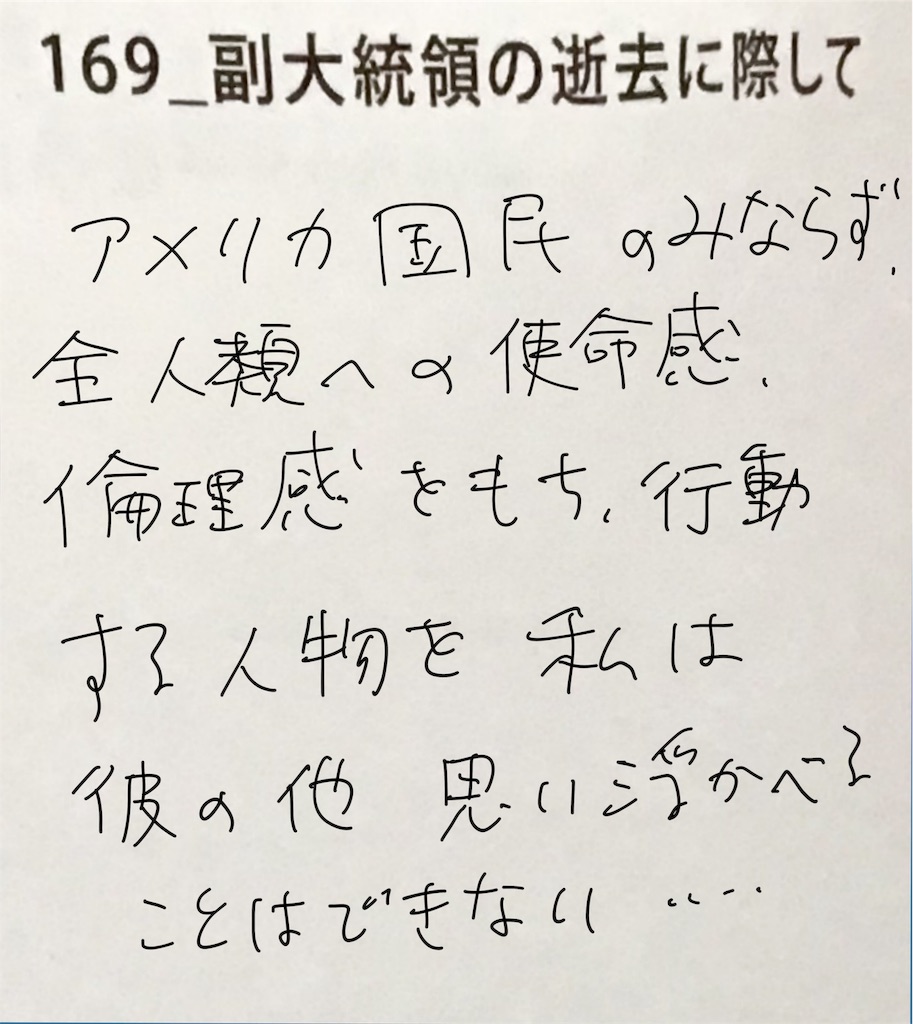 169_副大統領の逝去に際して
アメリカ国民のみならず、
全人類への使命感、
倫理感をもち、行動
する人物を私は
彼の他思い浮かべる
ことはできない……